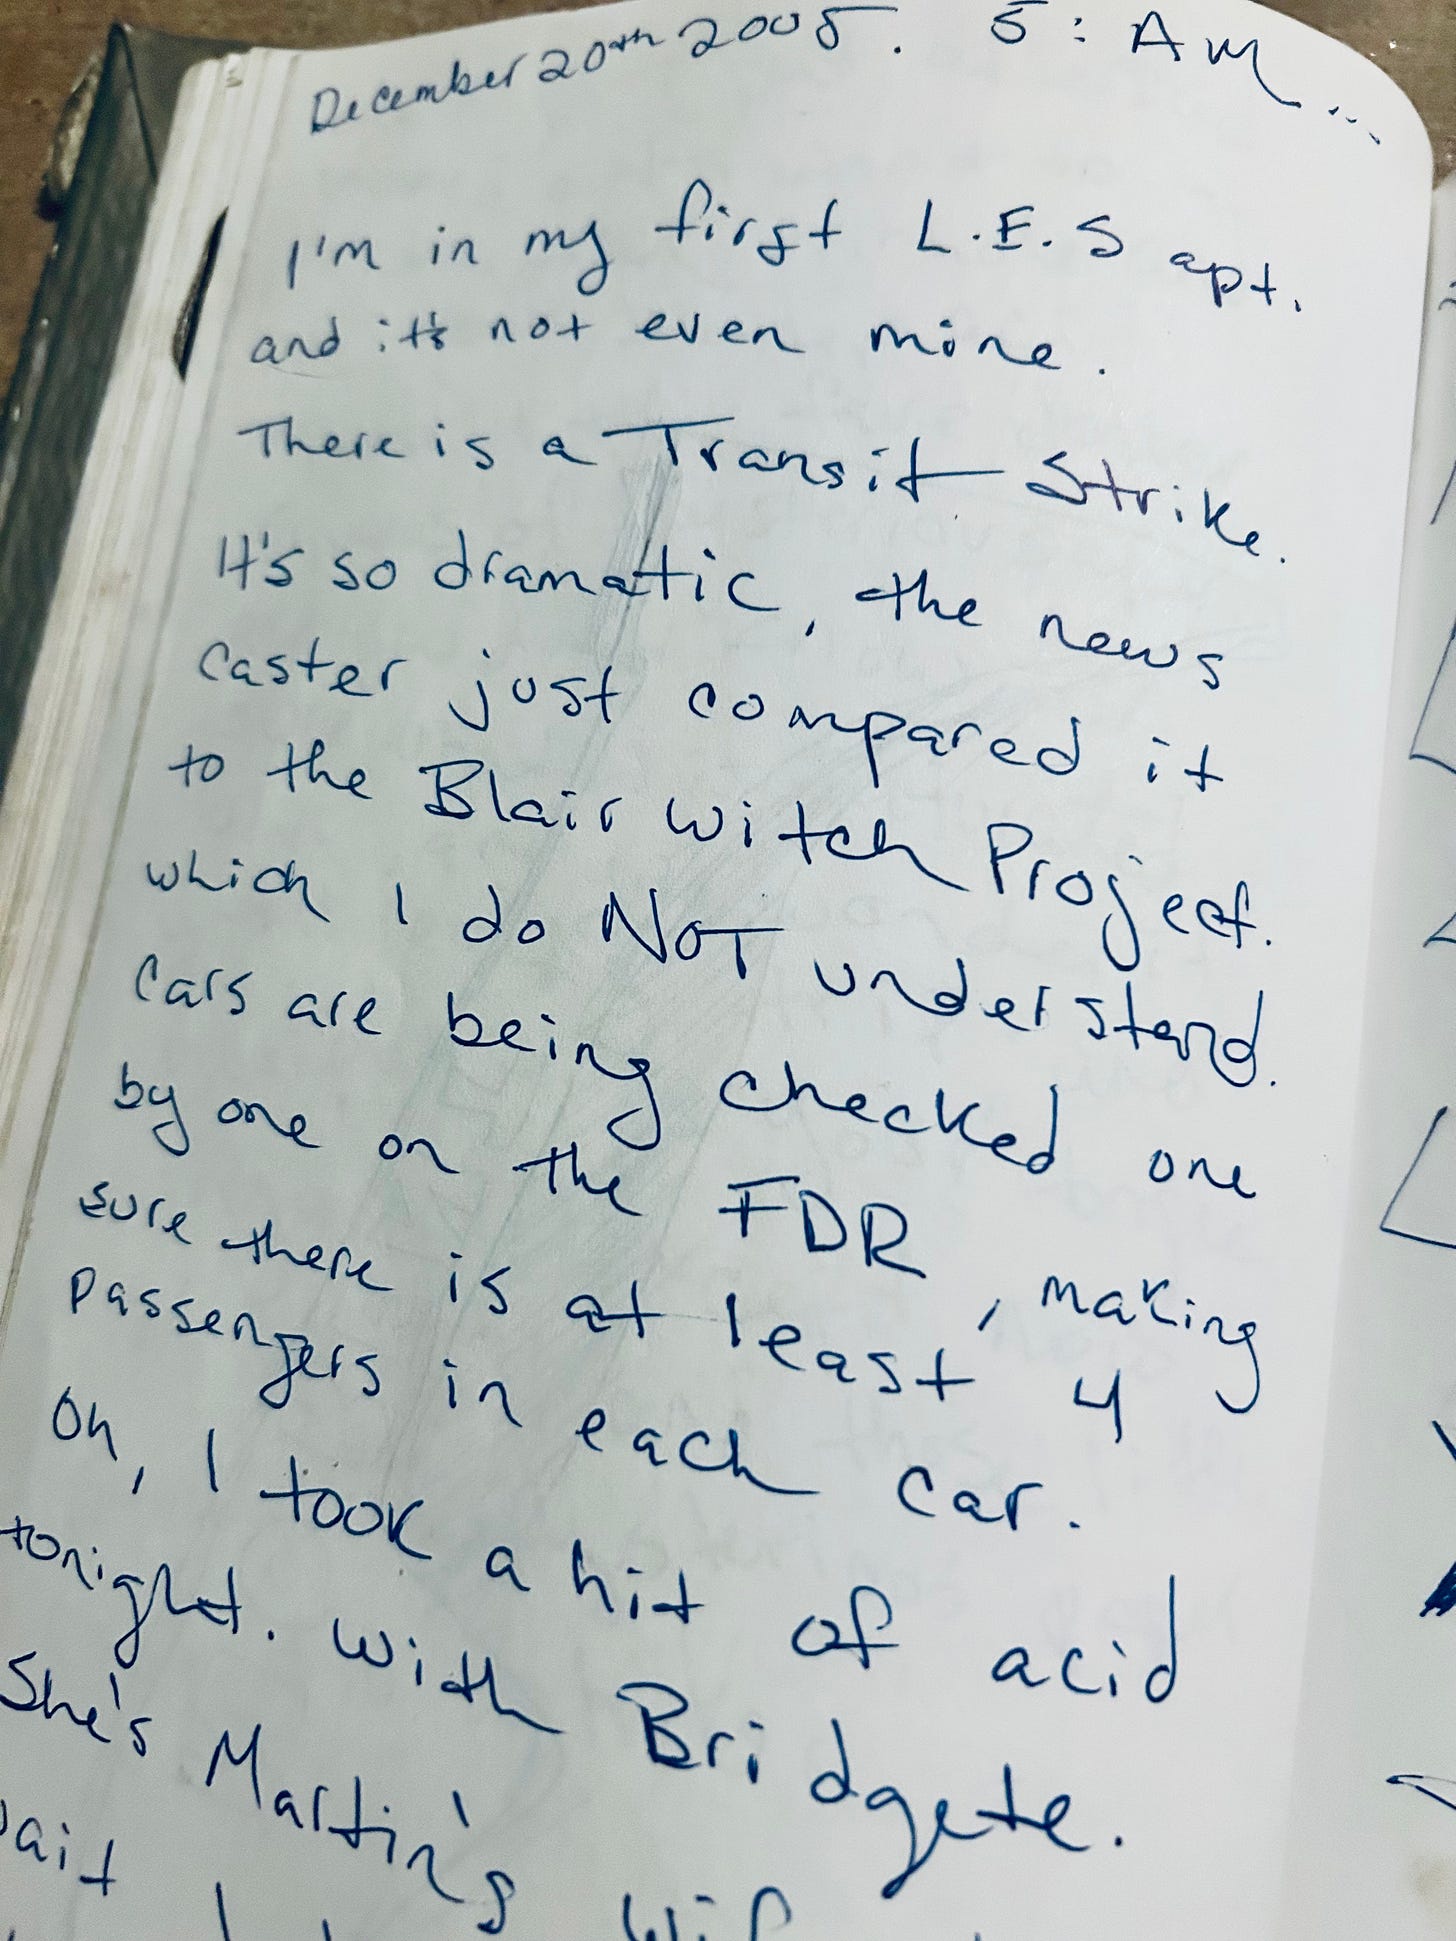 December 20th 2005. 5: AM...
I'm in my first L.E.S apt.
and it's not even mine.
There is a Transit Strike.
It's so dramatic, the news
caster just compared it
to the Blair Witch Project.
which I do NOT understand.
Cars are being checked one
by one on the FDR, making
sure there is at least 4
passengers in each car.
Oh, I took a hit of acid
tonight. With Bridgete.
She's Martin's